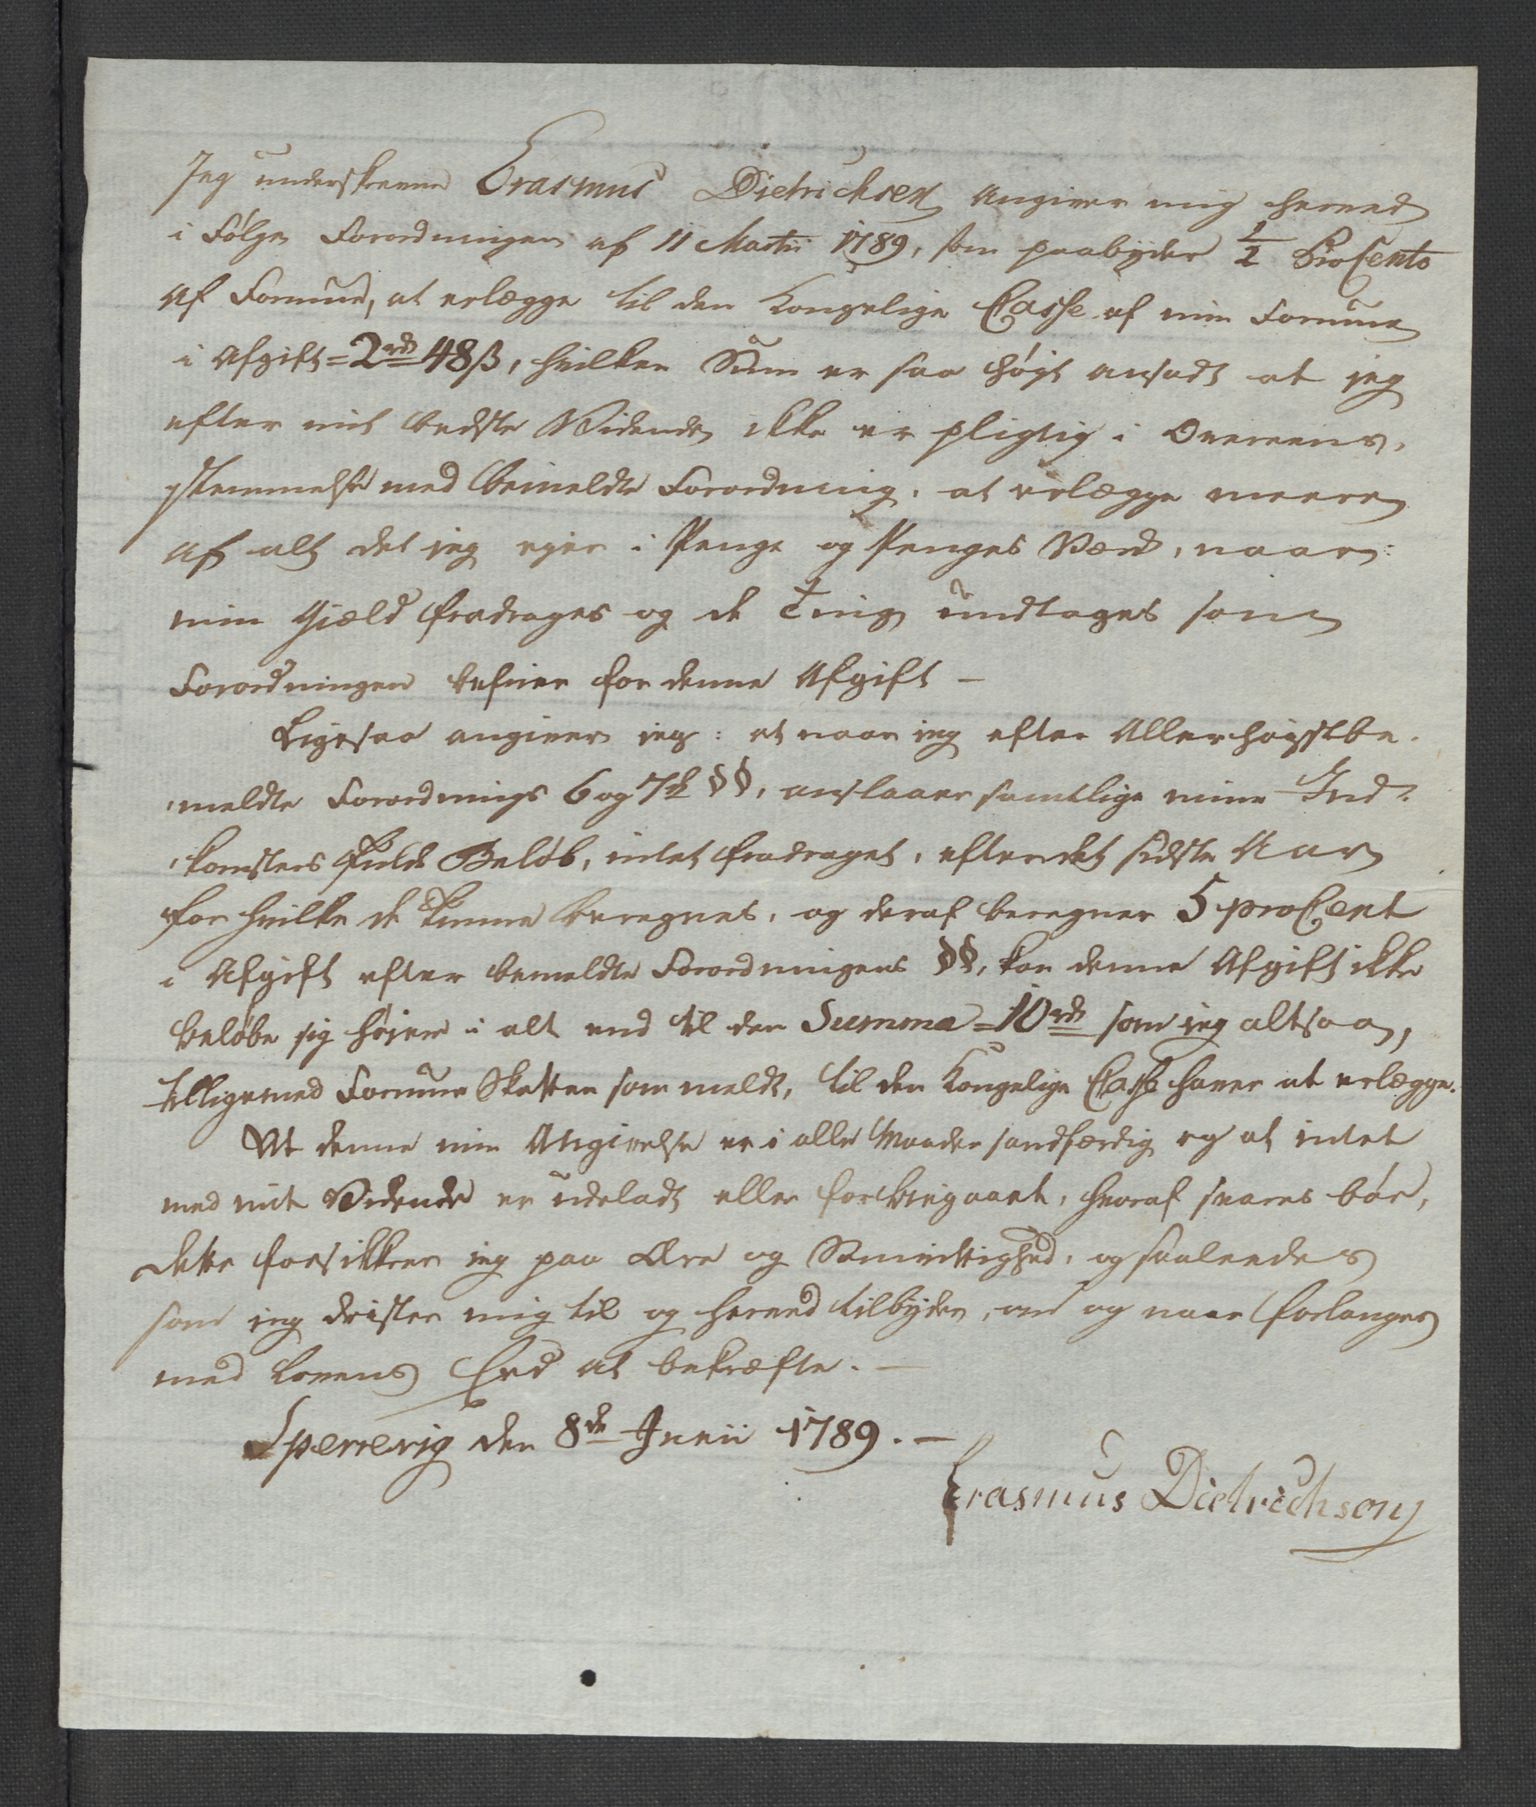 Jeg underskrevne Erasmus Dietrichsen angiver mig herved
i Følge Forordningen af 11 Martii 1789, som paabyder 1/2 ProCento
af Formue, at erlægge til den Kongelige Casse af min Formue
i Afgift = 2rd 48ß, hvilken Sum er saa høyt ansadt at jeg
efter mit bedste Vidende ikke er pligtig i Overeens,
stemmelse med bemeldte Forordning, at erlægge meere
af alt det jeg ejer i Penge og Penges Værd, naar
min Gjæld fradrages og de Ting undtages som
Forordningen befrier for denne Afgift —
Ligesaa angiver jeg: at naar jeg efter Allerhøystbe-
meldte Forordnings 6 og 7de §§, anslaaer samtlige mine Ind-
komsters fulde Beløb, intet fradraget, efter det sidste Aar
for hvilke de kunne beregnes, og deraf beregner 5 proCent
i Afgift efter bemeldte Forordningens §§, kan denne Afgift ikke
beløbe sig høyere i alt end til den Summa = 10rd som jeg altsaa,
tilligemed Formue Skatten som meldt, til den Kongelige Casse haver at erlægge.
At denne min Angivelse er i alle Maader sandfærdig og at intet
med mit Vidende er udeladt eller forbiegaaet, hvoraf svares bør,
dette forsikkrer jeg paa Ære og Samvittighed, og saaleedes
som jeg drister mig til og herved tilbyder, om og naar forlanges
med Lovens Eed at bekræfte. —
Sperrevig den 8de Junii 1789. —
Erasmus Dietrichson